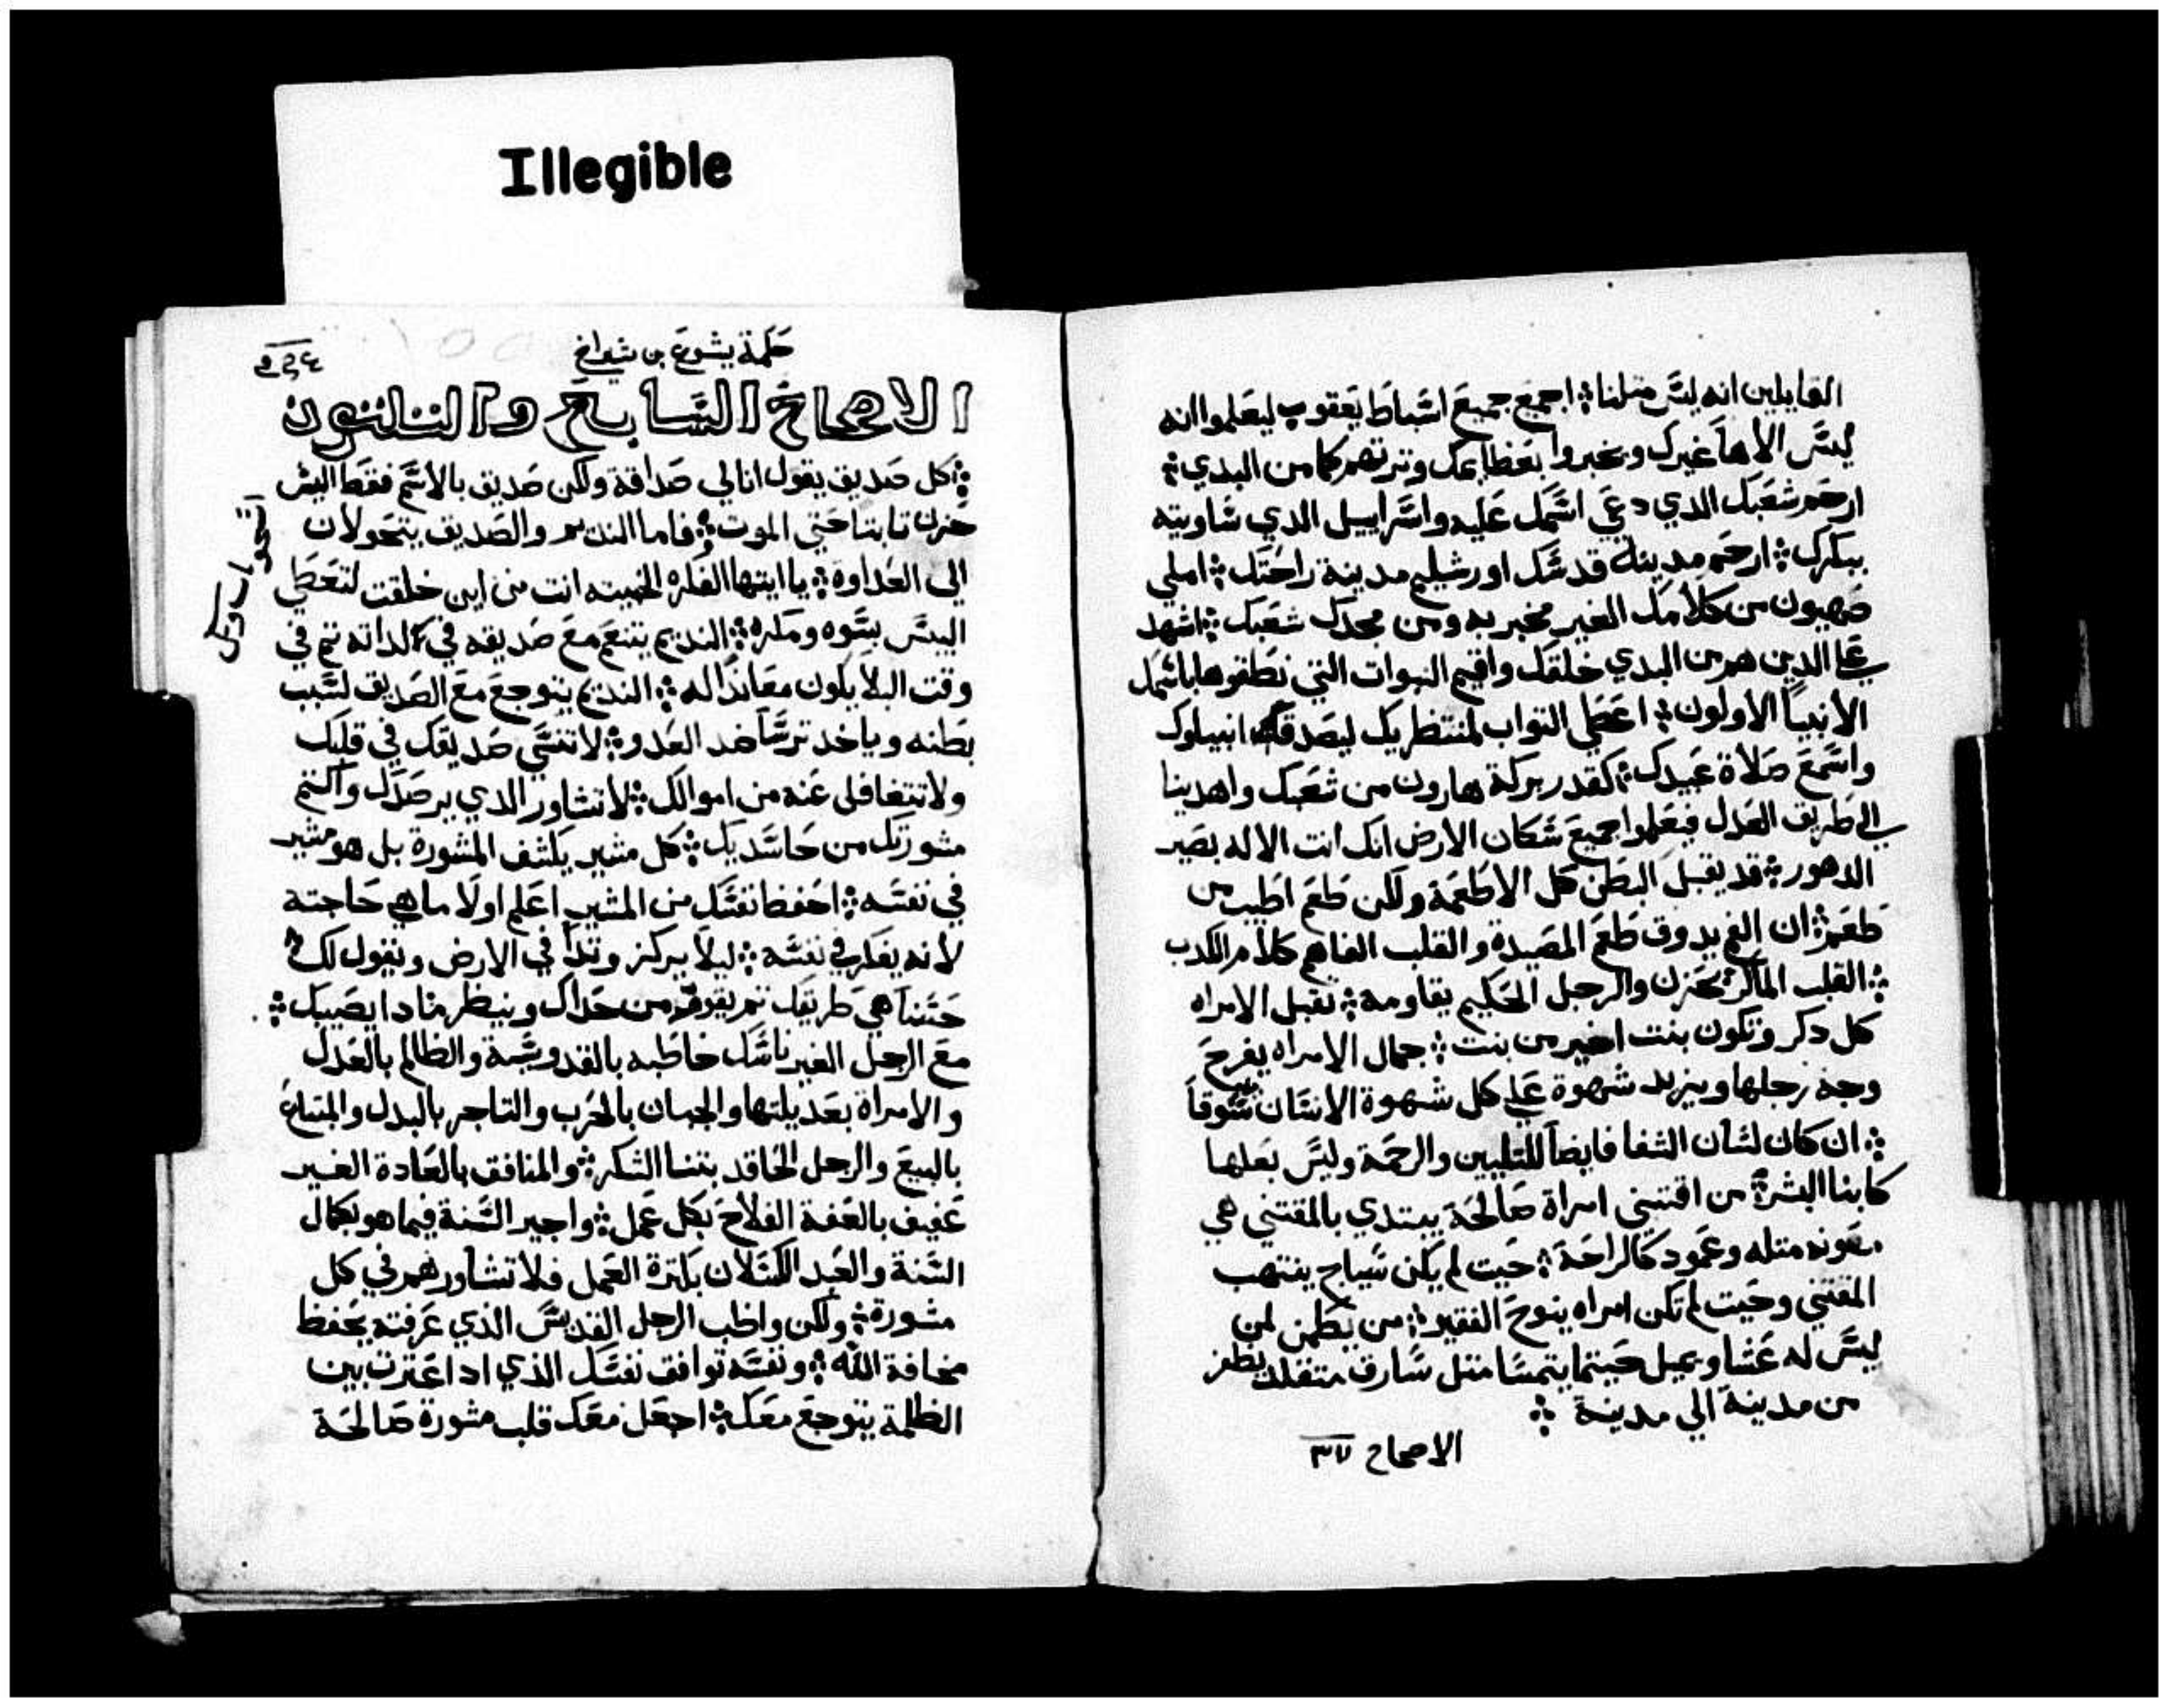 Illegible
القايلين انه ليس متلنا ⁘ اجمع جميع اسباط يعقوب ليعلموا انه
ليس الاها غيرك ويخبروا بعظايمك وترتهم كما من البدي ⁘
ارحم شعبك الدي دعي اسمك عليه واسراييل الدي ساويته
ببكرك ⁘ ارحم مدينة قدسك اورشليم مدينة راحتك ⁘ املي
صهيون من كلامك الغير مخبر به ومن مجدك شعبك ⁘ اشهد
علي الدين هم من البدي خلقك واقيم النبوات التي نطقوها باسمك
الانبيا الاولون ⁘ اعطي التواب لمنتظريك ليصدقك انبياوك
واسمع صلاة عبيدك ⁘ كقدر بركة هارون من شعبك واهدينا
الي طريق العدل فيعلموا جميع سكان الارض انك انت الاله بصير
الدهور ⁘ قد يقبل البطن كل الاطعمة ولكن طعم اطيب من
طعم ⁘ ان الفم يدوق طعم المصيدة والقلب الفاهم كلام الكدب
⁘ القلب الماكر يحزن والرجل الحكيم يقاومه ⁘ تقبل الامراه
كل دكر وتكون بنت اخير من بنت ⁘ جمال الامراه يفرح
وجه رجلها ويزيد شهوة علي كل شهوة الانسان شوقاً
⁘ ان كان لسان الشفا فايضاً للتليين والرحمة وليس بعلها
كابنا البشرية من اقتني امراة صالحة يبتدي بالمقتني هي
معونه متله وعمود كالراحة ⁘ حيت لم يكن سياج ينتهب
المقتني وحيت لم تكن امراه ينوح الفقير ⁘ من يطمن لمن
ليس له عشا ويميل حيتما يتمسا متل سارق متقلد يطفر
من مدينة الي مدينة ⁘
الاصحاح ٣٧
حكمة يشوع بن شيراخ
الاصحاح السابع والتلتون
⁘ كل صديق يقول انا لي صداقة ولكن صديق بالاسم فقط اليس
حزن تابتا حتي الموت ⁘ فاما النديم والصديق يتحولان
الي العداوة ⁘ يا ايتها الفكره الخبيته انت من اين خلقت لتغطي
اليبس بسوه ومكره ⁘ النديم يتنعم مع صديقه في لداته تم في
وقت البلا يكون معانداً له ⁘ النديم يتوجع مع الصديق لسبب
بطنه وياخد ترساً ضد العدو ⁘ لا تنسي صديقك في قلبك
ولا تتغافل عنه من اموالك ⁘ لا تشاور الدي يرصدك واكتم
مشورتك من حاسديك ⁘ كل مشير يكشف المشورة بل هو مشير
في نفسه ⁘ احفظ نفسك من المشير اعلم اولا ما هي حاجته
لانه يفكر في نفسه ⁘ ليلا يركز وتداً في الارض ويقول لك
حسنا هي طريقك تم يقوم من حداك وينظر مادا يصيبك ⁘
مع الرجل الغير ناسك خاطبه بالقدوسية والظالم بالعدل
والامراة بعديلتها والجبان بالحرب والتاجر بالبدل والمبتاع
بالبيع والرجل الحاقد بتنا الشكر ⁘ والمنافق بالعادة الغير
عفيف بالعفة الفلاح بكل عمل ⁘ واجير السنة فيما هو بكمال
السنة والعبد الكسلان بكترة العمل فلا تشاورهم في كل
مشورة ⁘ ولكن واظب الرجل القديس الذي عرفته يحفظ
مخافة الله ⁘ ونفسه توافق نفسك الذي ادا عترت بين
الظلمة يتوجع معك ⁘ اجعل معك قلب مشورة صالحة